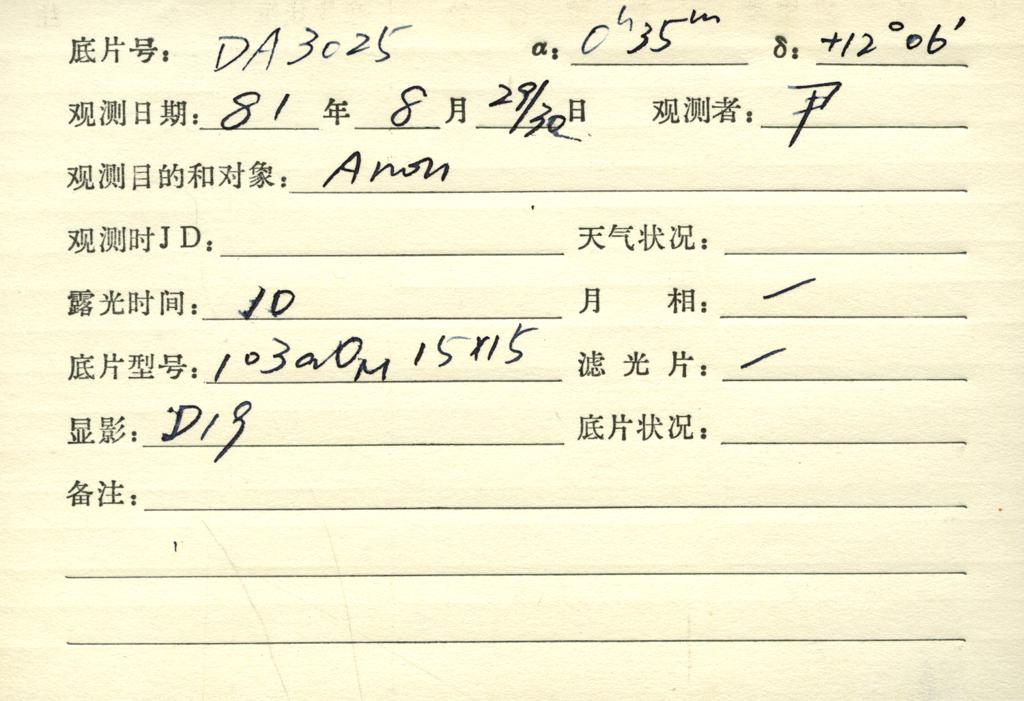 底片号: DA3025 α: 0ʰ35ᵐ δ: +12°06′
观测日期: 81 年 8 月 29/30 日 观测者: 尹
观测目的和对象: Anon
观测时JD: 天气状况:
露光时间: 10 月 相: /
底片型号: 103aO 15×15 滤光片: /
显影: D19 底片状况:
备注: